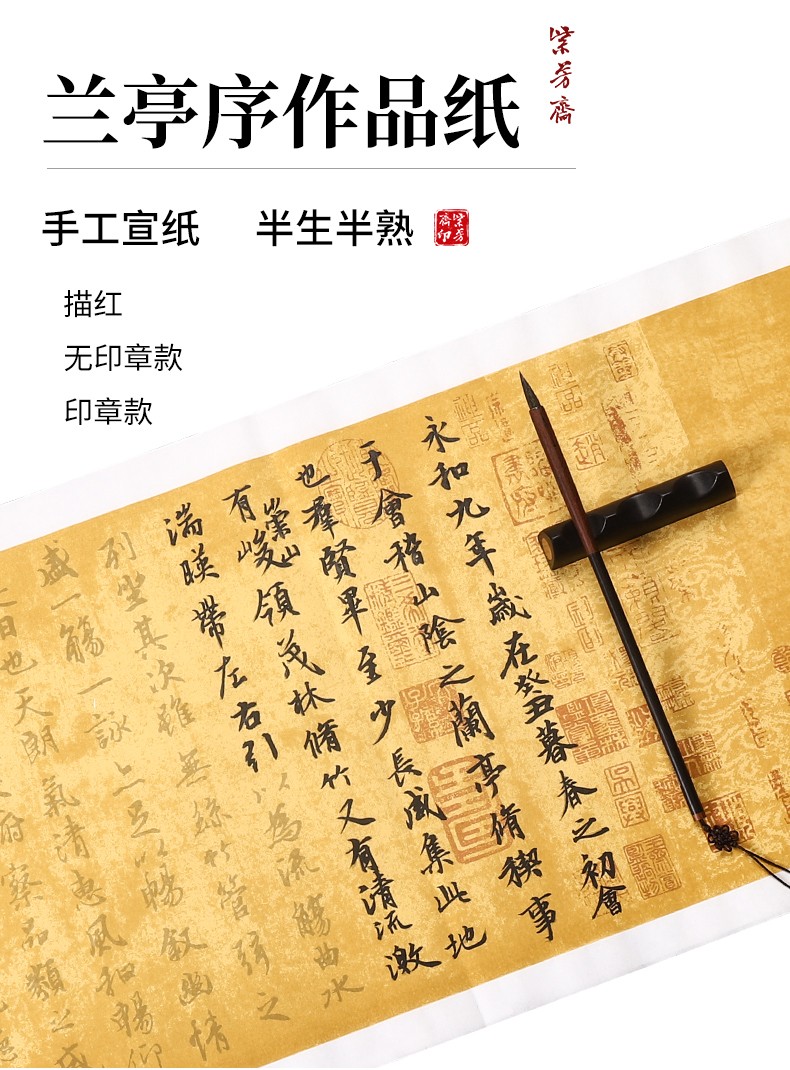 紫芳齋
兰亭序作品纸
手工宣纸 半生半熟
紫芳齋印
描红
无印章款
印章款
永和九年歲在癸丑暮春之初會
于會稽山陰之蘭亭脩稧事
也羣賢畢至少長咸集此地
有崇山峻領茂林脩竹又有清流激
湍暎帶左右引以為流觴曲水
列坐其次雖無絲竹管弦之
盛一觴一詠亦足以暢叙幽情
日也天朗氣清惠風和暢仰
察品類之盛